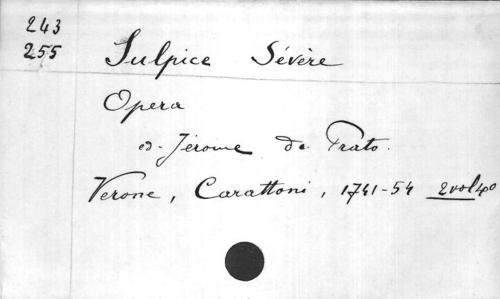 243
255
Sulpice Sévère
Opera
ed. Jérome de Prato.
Verone, Carattoni, 1741-54 2 vol 4o